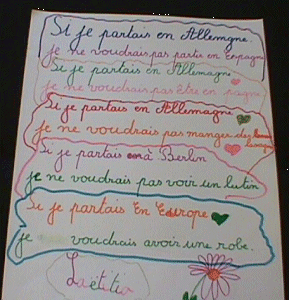 Si je partais en Allemagne
je ne voudrais pas partir en Espagne
Si je partais en Allemagne
je ne voudrais pas être en pagne
Si je partais en Allemagne
je ne voudrais pas manger des
lasagnes
Si je partais à Berlin
je ne voudrais pas voir un lutin
Si je partais En Europe
je voudrais avoir une robe.
Laëtitia